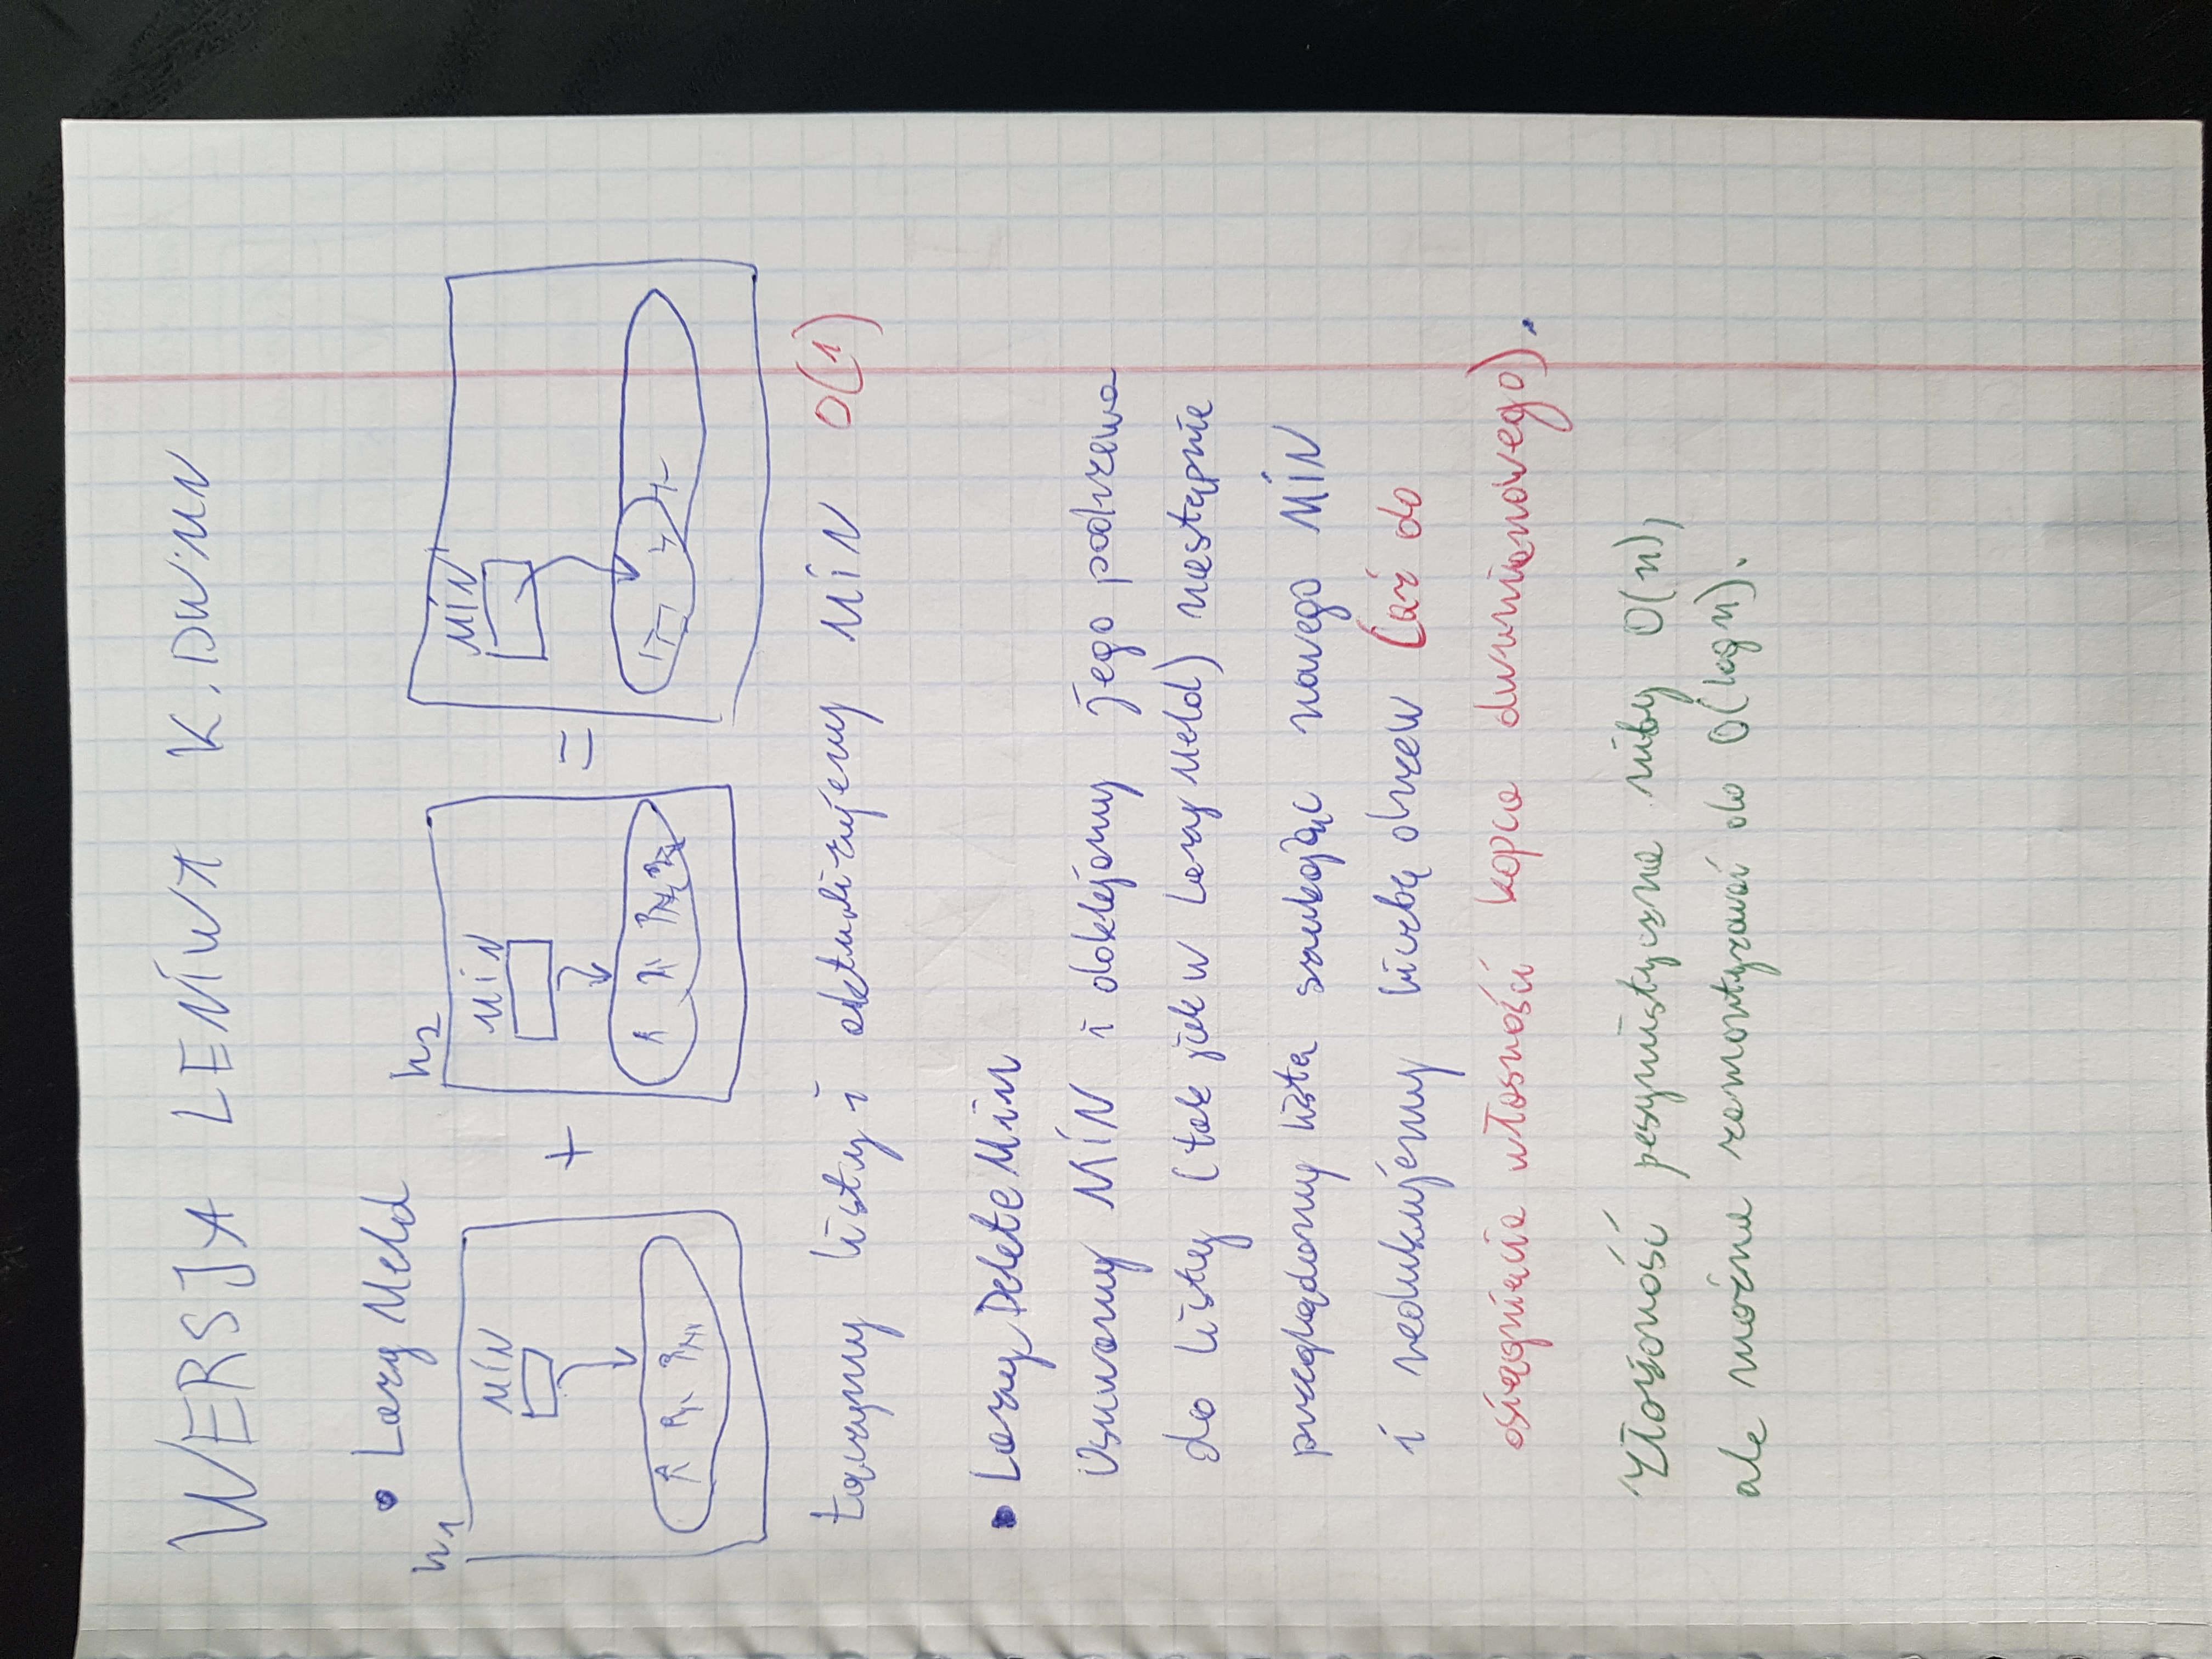 WERSJA LENIWA K. DWUMN
• Lazy Meld
h1
h2
MIN
MIN
MIN'
+
=
Łączymy listy i aktualizujemy MIN O(1)
• Lazy DeleteMin
Usuwamy MIN i doklejamy jego podrzewa
do listy (tak jak w Lazy Meld) następnie
przeglądamy listę szukając nowego MIN
i redukujemy liczbę drzew (aż do
osiągnięcia własności kopca dwumianowego).
Złożoność pesymistyczna niby O(n),
ale można zamortyzować do O(log n).